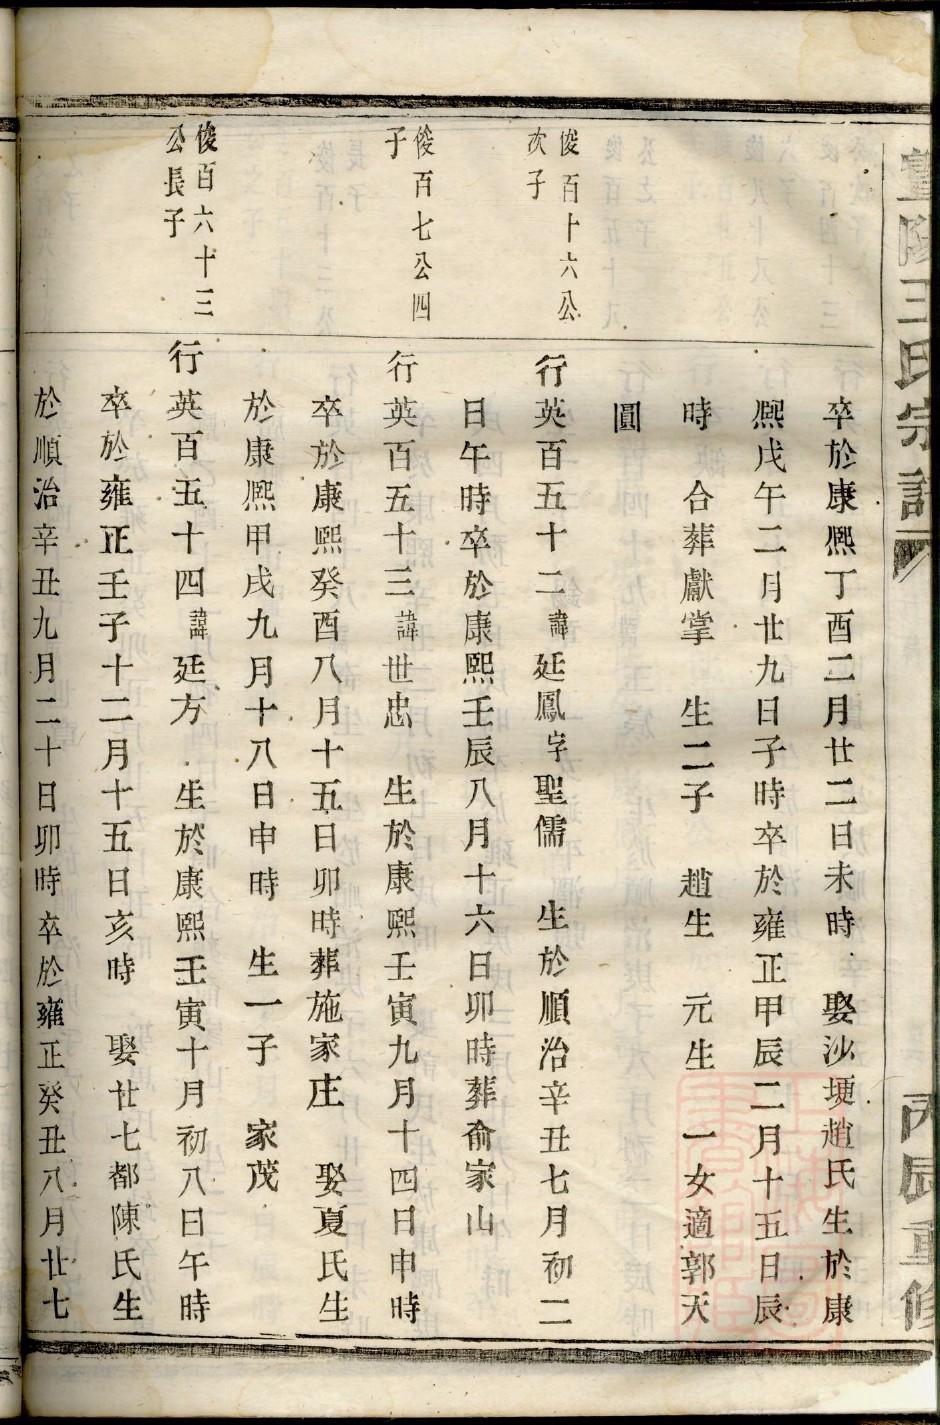 暨陽王氏宗譜
丙辰重修
卒於康熙丁酉二月廿二日未時　娶沙埂趙氏生於康
熙戊午二月廿九日子時卒於雍正甲辰二月十五日辰
時　合葬獻掌　生二子　趙生　元生　一女適郭天
圓
俊百十六公
次子
行英百五十二諱廷鳳字聖儒　生於順治辛丑七月初二
日午時卒於康熙壬辰八月十六日卯時葬俞家山
俊百七公四
子
行英百五十三諱世忠　生於康熙壬寅九月十四日申時
卒於康熙癸酉八月十五日卯時葬施家庄　娶夏氏生
於康熙甲戌九月十八日申時　生一子　家茂
俊百六十三
公長子
行英百五十四諱廷方　生於康熙壬寅十月初八日午時
卒於雍正壬子十二月十五日亥時　娶廿七都陳氏生
於順治辛丑九月二十日卯時卒於雍正癸丑八月廿七